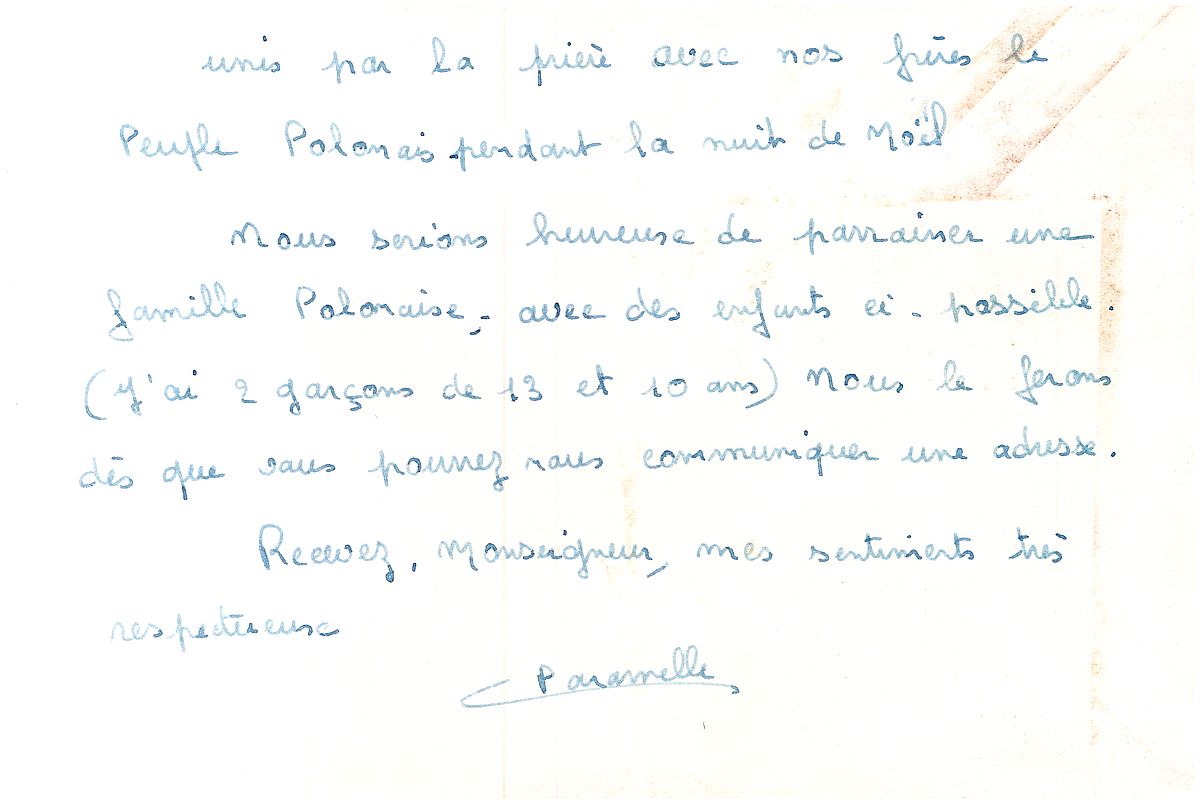 unis par la prière avec nos frères le
Peuple Polonais pendant la nuit de Noël
Nous serions heureuse de parrainer une
famille Polonaise, avec des enfants ci-possible.
(J'ai 2 garçons de 13 et 10 ans) Nous le ferons
dès que vous pourrez nous communiquer une adresse.
Recevez, Monseigneur, mes sentiments très
respectueuse
Paramelle